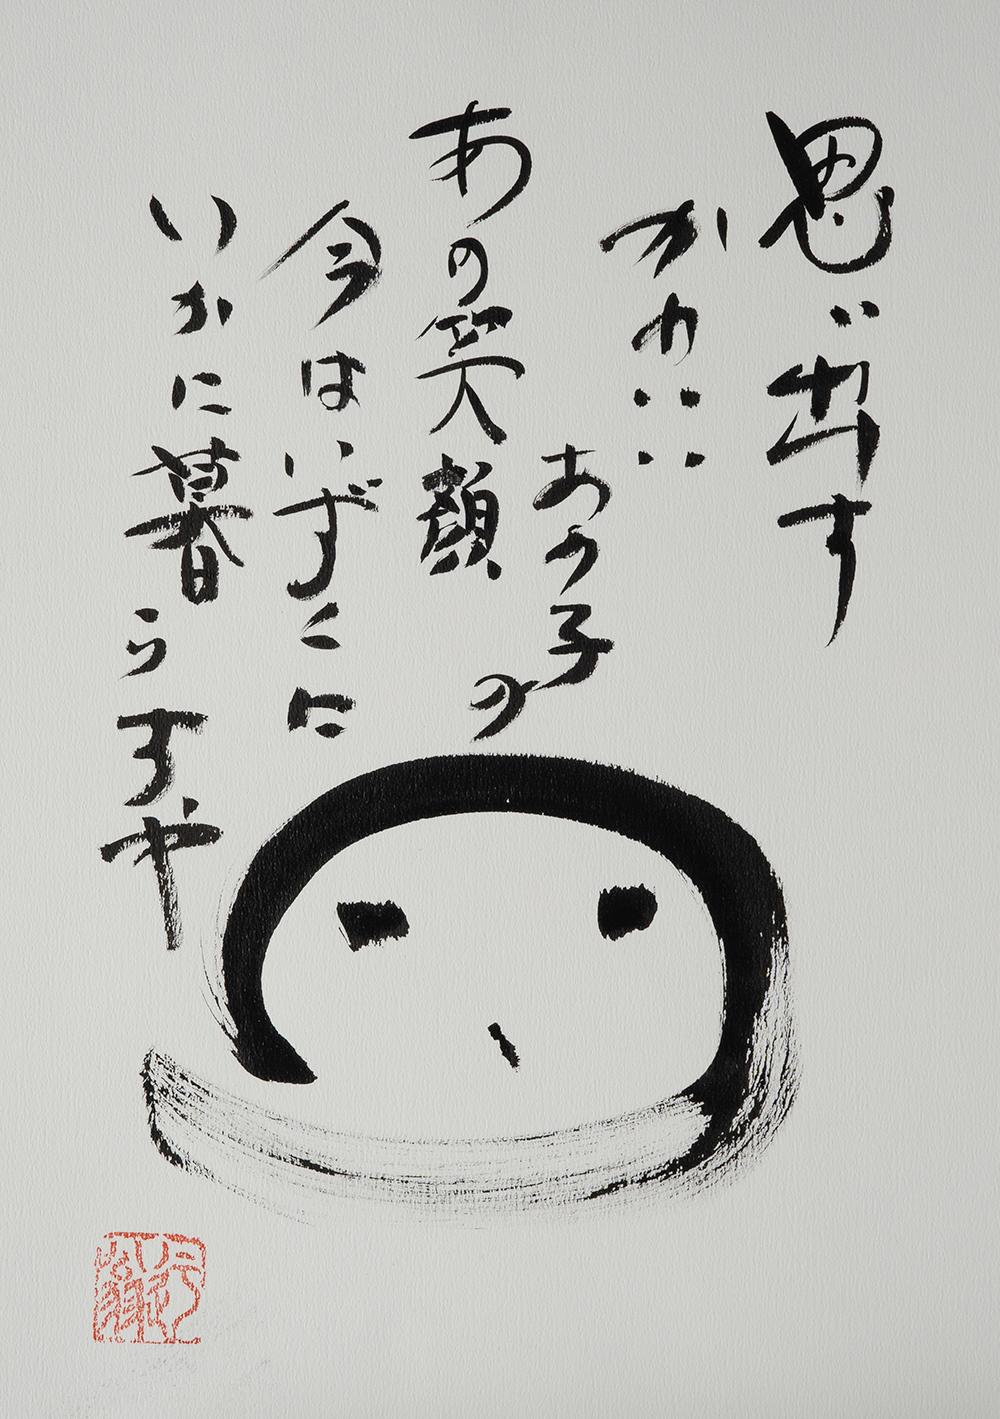 思い出す
かわいい
あの子の
あの笑顔
今はいずくに
いかに暮らすや